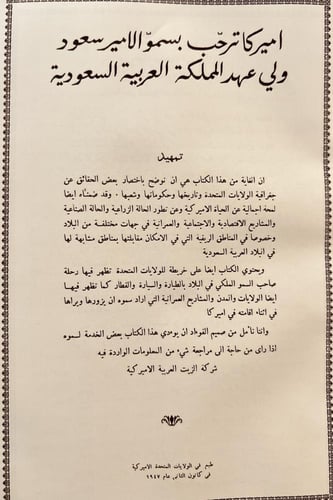 اميركا ترحّب بسموّ الامير سعود
ولي عهد المملكة العربية السعودية
تمهيد
ان الغاية من هذا الكتاب هي ان نوضح باختصار بعض الحقائق عن
جغرافية الولايات المتحدة وتاريخها وحكوماتها وشعبها . وقد ضمنّاه ايضا
لمحة اجمالية عن الحياة الاميركية وعن تطور الحالة الزراعية والحالة الصناعية
والمشاريع الاقتصادية والاجتماعية والعمرانية في جهات مختلفة من البلاد
وخصوصاً في المناطق الريفية التي في الامكان مقابلتها بمناطق مشابهة لها
في البلاد العربية السعودية
ويحتوي الكتاب ايضا على خريطة للولايات المتحدة تظهر فيها رحلة
صاحب السمو الملكي في البلاد بالطيارة والسيارة والقطار كما تظهر فيها
ايضا الولايات والمدن والمشاريع العمرانية التي اراد سموه ان يزورها ويراها
في اثناء اقامته في اميركا
واننا نأمل من صميم الفؤاد ان يؤدي هذا الكتاب بعض الخدمة لسموه
اذا رأى من حاجة الى مراجعة شيء من المعلومات الواردة فيه
شركة الزيت العربية الاميركية
طبع في الولايات المتحدة الاميركية
في كانون الثاني عام ١٩٤٧